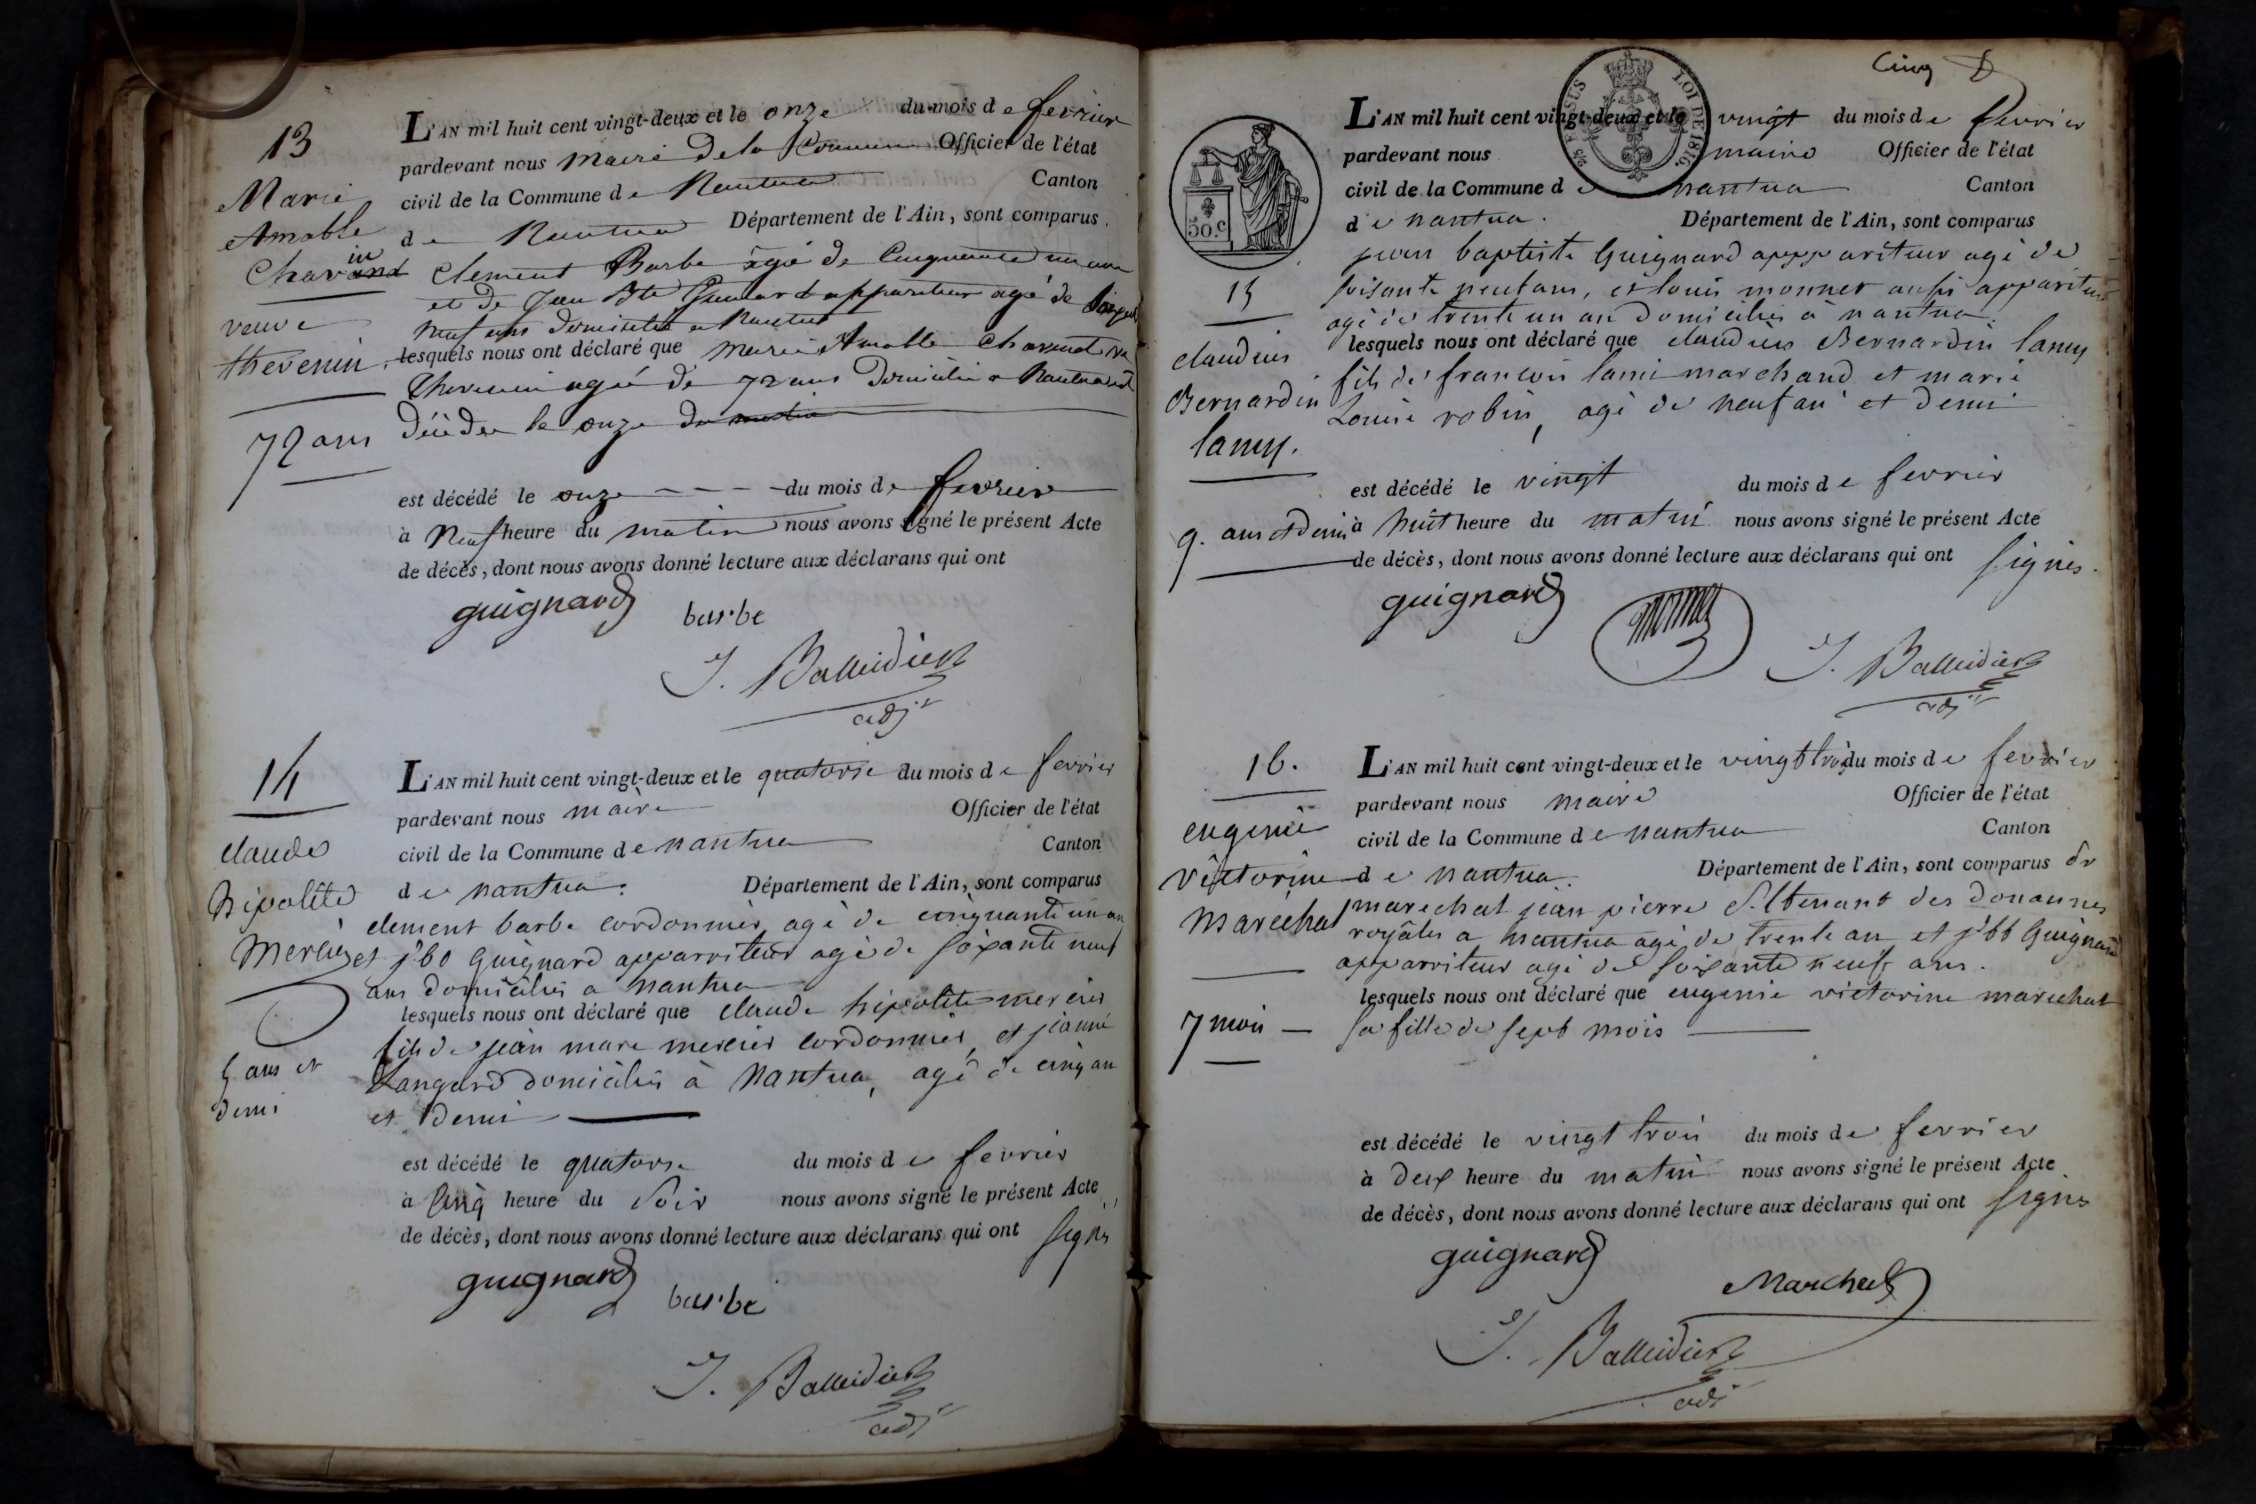 13
Marie
Amable
Chavand
in
veuve
thevenin
72 ans
L'AN mil huit cent vingt-deux et le onze du mois de fevrier
pardevant nous Maire de la Commune Officier de l'état
civil de la Commune de Nantua Canton
de Nantua Département de l'Ain, sont comparus
Clement Barbe agé de Cinquante un ans
et de Jean Bte Guignard appariteur agé de
neuf ans domiciliés a Nantua
lesquels nous ont déclaré que Marie Amable Chavand ve
Thevenin agée de 72 ans Domiciliée a Nantua est
décédée le onze du matin
est décédé le onze du mois de fevrier
à Neuf heure du matin nous avons signé le présent Acte
de décès, dont nous avons donné lecture aux déclarans qui ont
guignard
barbe
J. Balleidier
adj
14
claude
hipolite
Mercier
5 ans et
demi
L'AN mil huit cent vingt-deux et le quatorse du mois de fevrier
pardevant nous maire Officier de l'état
civil de la Commune de nantua Canton
de nantua. Département de l'Ain, sont comparus
clement barbe cordonnier agé de cinquante un an
et j' guignard apparriteur agé de soixante neuf
ans domiciliés a nantua
lesquels nous ont déclaré que claude hipolite mercier
fils de jean marc mercier cordonnier, et jeanne
Langard domiciliés à nantua, agé de cinq an
et demi
est décédé le quatorse du mois de fevrier
à Cinq heure du soir nous avons signé le présent Acte
de décès, dont nous avons donné lecture aux déclarans qui ont signés
guignard
barbe
J. Balleidier
adj
Cinq
LOI DE 1816.
50.c
15
claudius
Bernardin
lamy.
9. ans et demi
L'AN mil huit cent vingt-deux et le vingt du mois de fevrier
pardevant nous maire Officier de l'état
civil de la Commune de nantua Canton
de nantua. Département de l'Ain, sont comparus
jean baptiste Guignard apppariteur agé de
soisante neuf ans, et louis monnet aussi appariteur
agé de trente un an domiciliés à nantua
lesquels nous ont déclaré que claudius Bernardin lamy
fils de francois lami marchand et marie
Louise robin, agé de neuf an et demi
est décédé le vingt du mois de fevrier
à huit heure du matin nous avons signé le présent Acte
de décès, dont nous avons donné lecture aux déclarans qui ont signés.
guignard
monnet
J. Balleidier
adj
16.
eugenie
victorine
maréchal
7 mois
L'AN mil huit cent vingt-deux et le vingt trois du mois de fevrier
pardevant nous maire Officier de l'état
civil de la Commune de nantua Canton
de nantua. Département de l'Ain, sont comparus
marechal jean pierre des douannes
royâles a nantua agé de trente an et j' Guignard
apparriteur agé de soixante neuf ans.
lesquels nous ont déclaré que eugenie victorine marechal
sa fille de sept mois
est décédé le vingt trois du mois de fevrier
à deux heure du matin nous avons signé le présent Acte
de décès, dont nous avons donné lecture aux déclarans qui ont signés
guignard
Marechal
J. Balleidier
adj